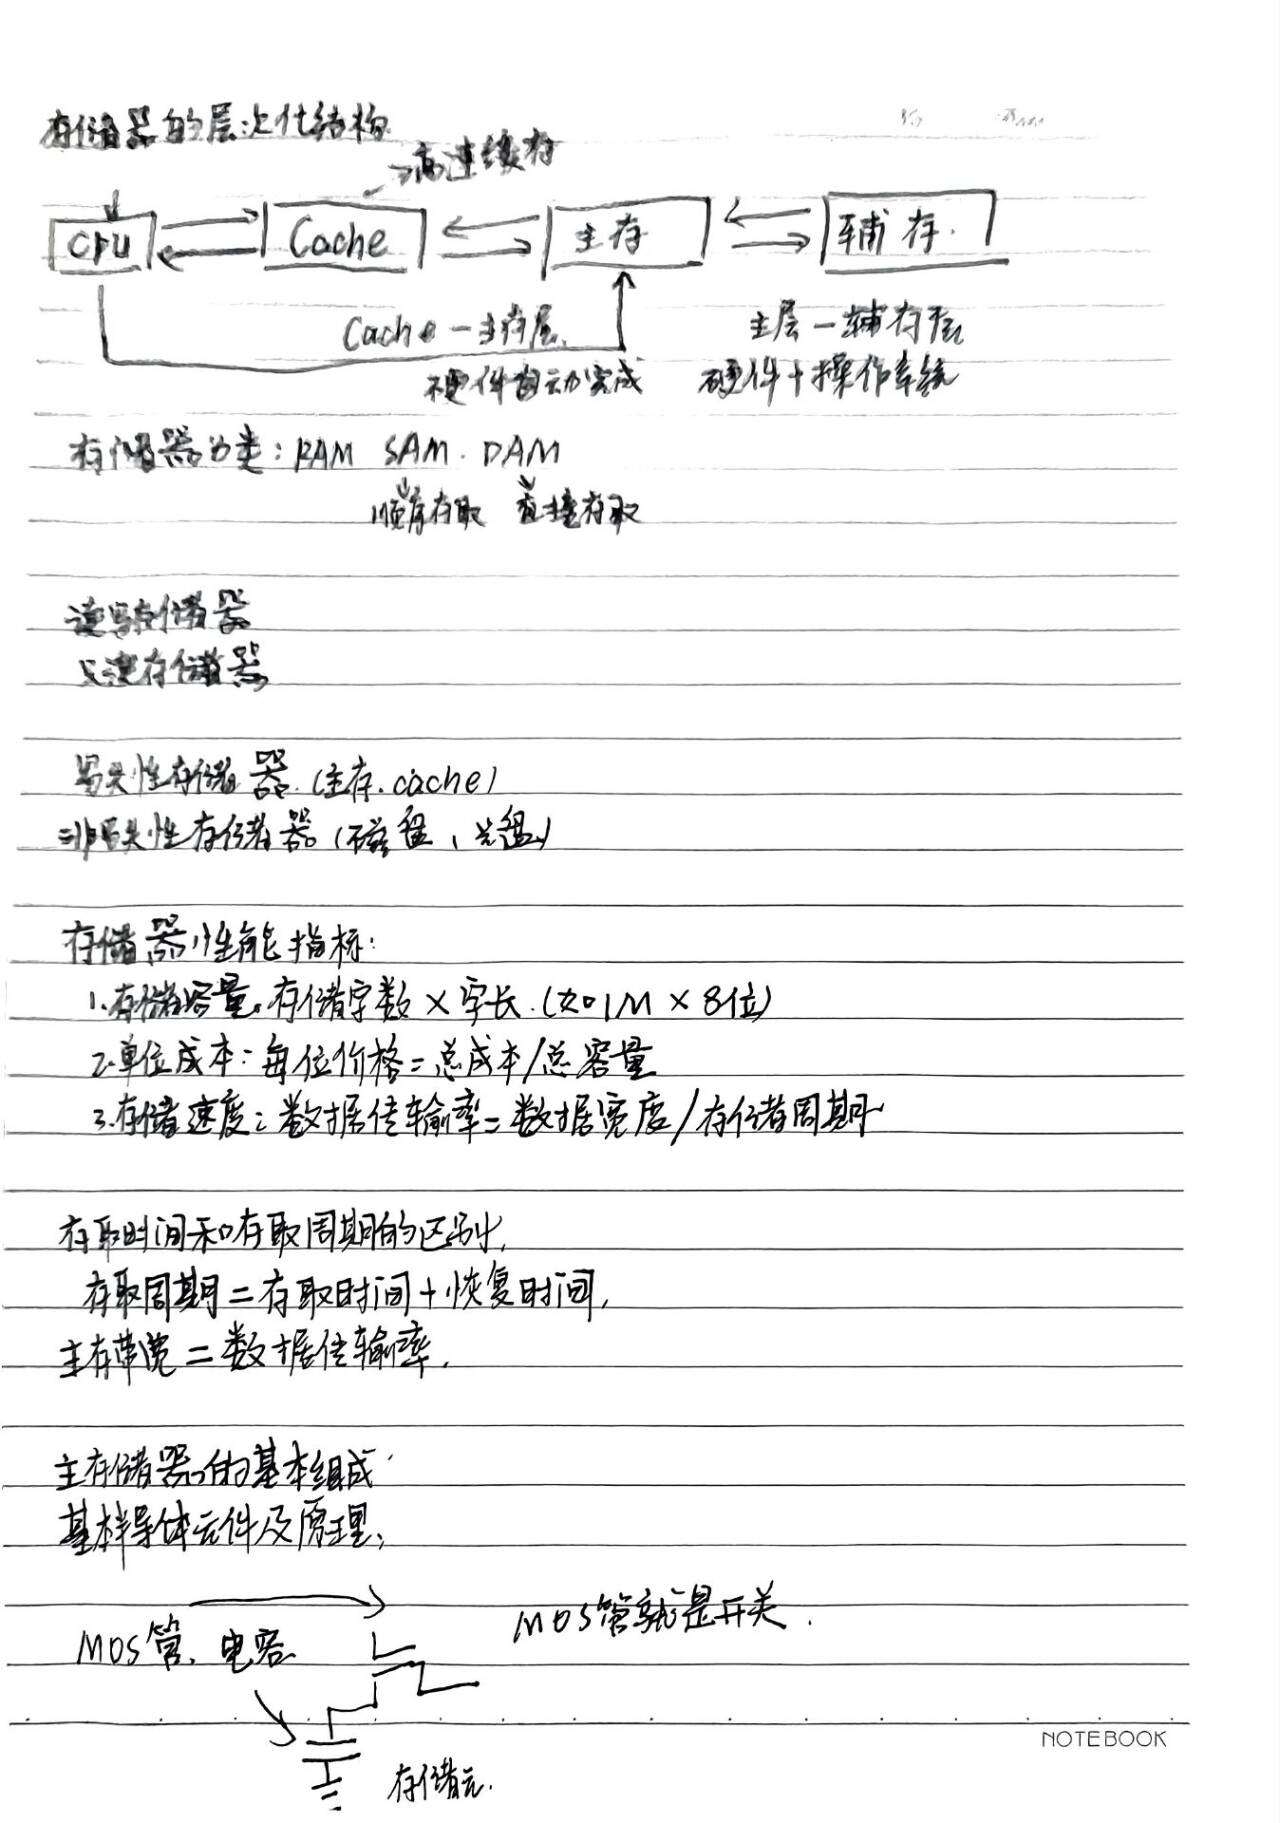 存储器的层次化结构
→高速缓存
CPU Cache 主存 辅存.
Cache-主存层 主层-辅存层
硬件自动完成 硬件+操作系统
存储器分类: RAM SAM. DAM
顺序存取 直接存取
读写存储器
只读存储器
易失性存储器.(主存.cache)
非易失性存储器(磁盘,光盘)
存储器性能指标:
1.存储容量.存储字数×字长.(如1M×8位)
2.单位成本:每位价格=总成本/总容量
3.存储速度:数据传输率=数据宽度/存储周期
存取时间和存取周期的区别,
存取周期=存取时间+恢复时间,
主存带宽=数据传输率.
主存储器的基本组成
基本半导体元件及原理;
MOS管就是开关.
MOS管、电容
NOTEBOOK
存储元.